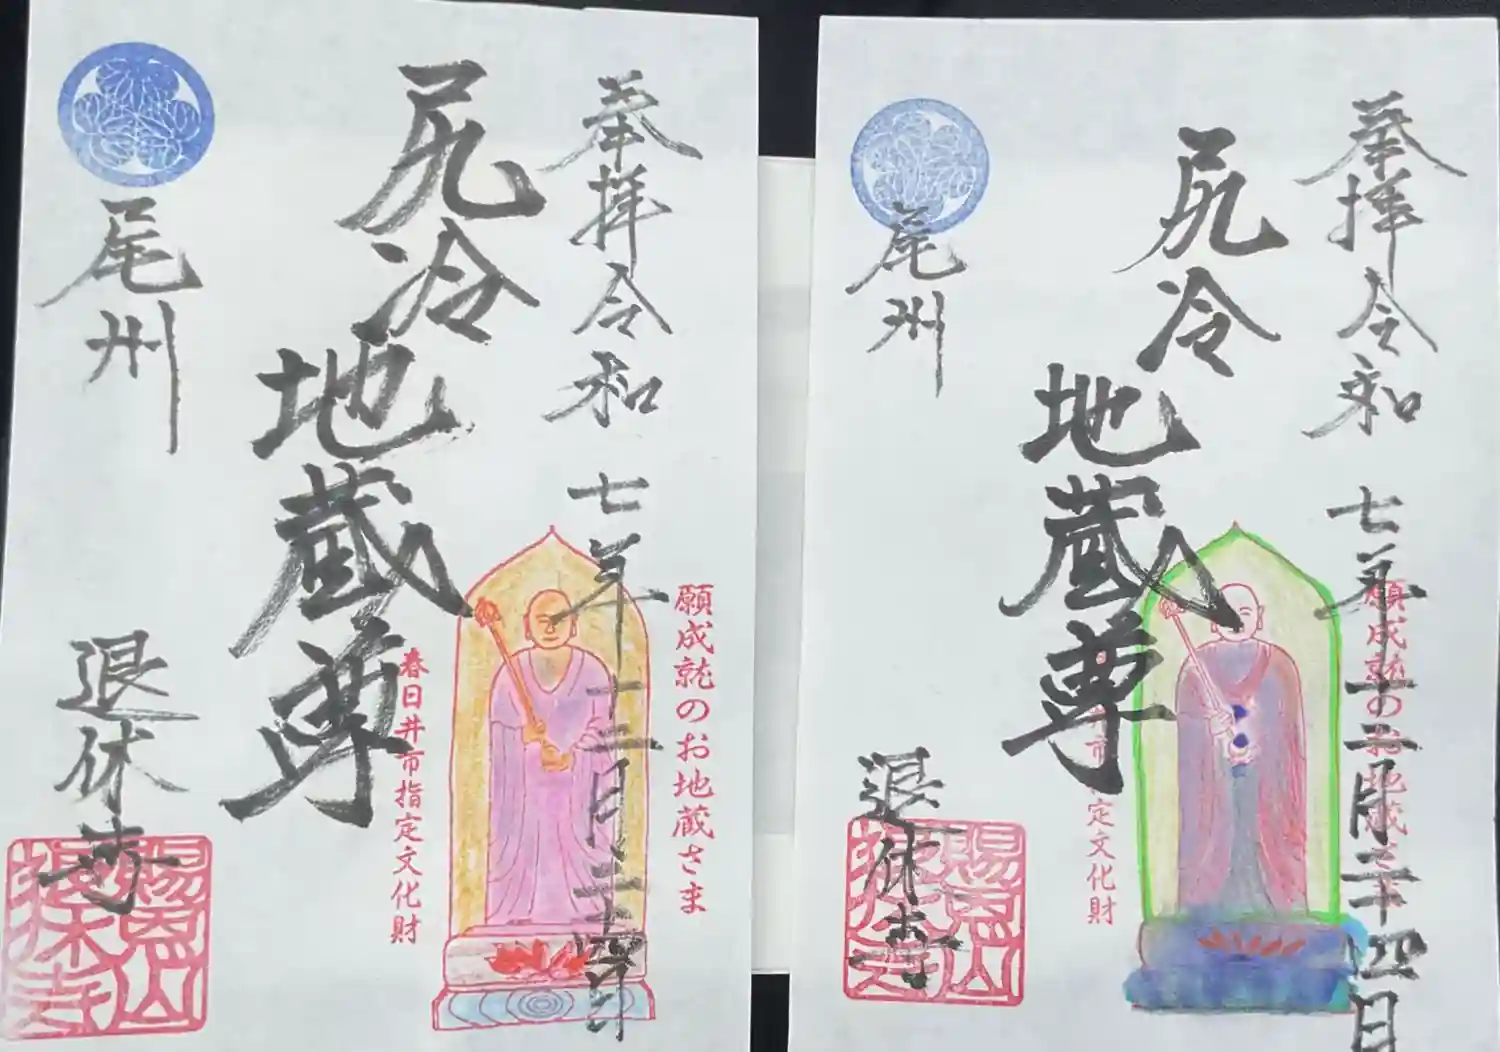 奉拝 令和七年十二月二十四日
尻冷地蔵尊
願成就のお地蔵さま
春日井市指定文化財
尾州
退休寺
賜恩山
退休寺
奉拝 令和七年十二月二十四日
尻冷地蔵尊
願成就のお地蔵さま
定文化財
尾州
退休寺
賜恩山
退休寺